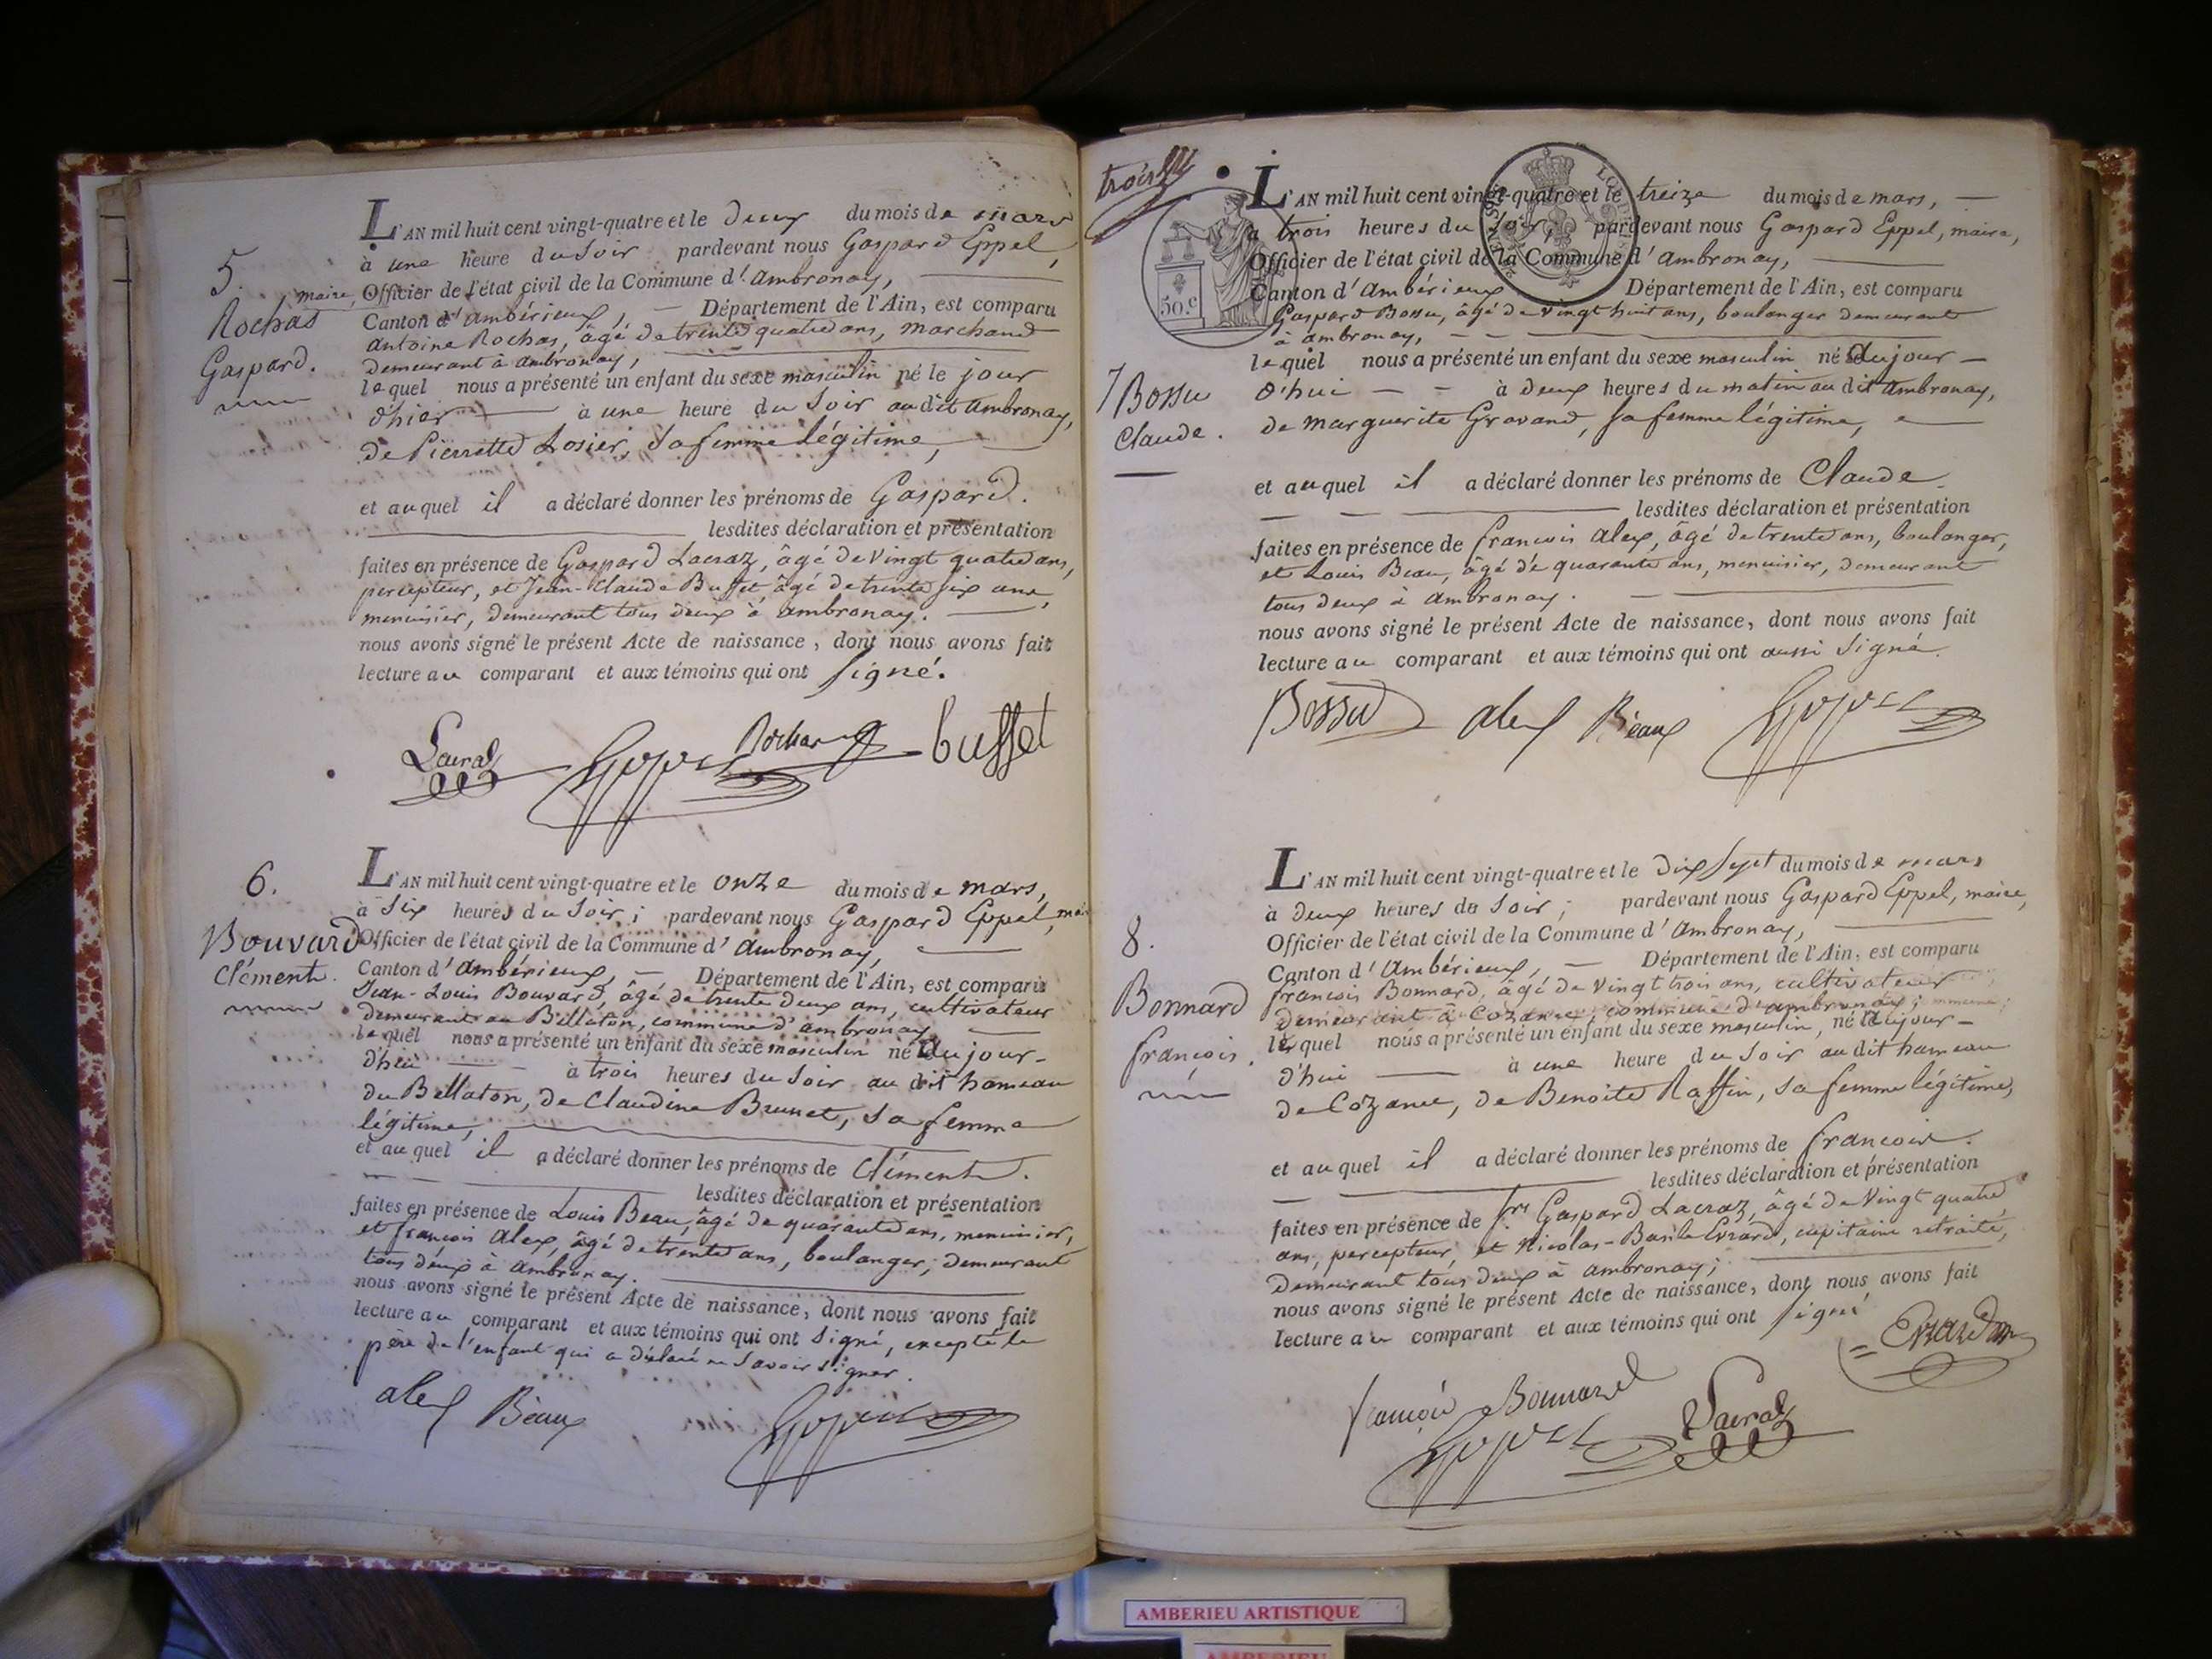 5.
Rochas
Gaspard.
L'AN mil huit cent vingt-quatre et le deux du mois de mars
à une heure du soir pardevant nous Gaspard Eppel,
maire, Officier de l'état civil de la Commune d'ambronay,
Canton d'ambérieux, Département de l'Ain, est comparu
antoine Rochas, âgé de trente quatre ans, marchand
demeurant à ambronay,
lequel nous a présenté un enfant du sexe masculin né le jour
d'hier à une heure du soir au dit ambronay,
de Pierrette Losier, sa femme légitime,
et auquel il a déclaré donner les prénoms de Gaspard.
lesdites déclaration et présentation
faites en présence de Gaspard Lacraz, âgé de vingt quatre ans,
percepteur, et Jean-Claude Buffet, âgé de trente six ans,
menuisier, demeurant tous deux à ambronay.
nous avons signé le présent Acte de naissance, dont nous avons fait
lecture au comparant et aux témoins qui ont signé.
Lacraz Eppel Rochas buffet
6.
Bouvard
Clément.
L'AN mil huit cent vingt-quatre et le onze du mois de mars,
à six heures du soir; pardevant nous Gaspard Eppel, mai
Officier de l'état civil de la Commune d'ambronay,
Canton d'ambérieux, Département de l'Ain, est comparu
Jean-Louis Bouvard, âgé de trente deux ans, cultivateur
demeurant au Bellaton, commune d'ambronay
lequel nous a présenté un enfant du sexe masculin né Cujour-
d'hui à trois heures du soir au dit hameau
du Bellaton, de Claudine Brunet, sa femme
légitime,
et auquel il a déclaré donner les prénoms de Clément.
lesdites déclaration et présentation
faites en présence de Louis Beau, âgé de quarante ans, menuisier,
et françois alex, âgé de trente ans, boulanger, demeurant
tous deux à ambronay.
nous avons signé le présent Acte de naissance, dont nous avons fait
lecture au comparant et aux témoins qui ont signé, excepté le
père de l'enfant qui a déclaré ne savoir signer.
alex Béaux Eppel
trois
50.c
7
Bossu
Claude.
L'AN mil huit cent vingt-quatre et le treize du mois de mars,
à trois heures du soir, pardevant nous Gaspard Eppel, maire,
Officier de l'état civil de la Commune d'ambronay,
Canton d'ambérieux Département de l'Ain, est comparu
Gaspard Bossu, âgé de vingt huit ans, boulanger demeurant
à ambronay,
lequel nous a présenté un enfant du sexe masculin né Cujour-
d'hui à deux heures du matin au dit ambronay,
de marguerite Gravand, sa femme légitime,
et auquel il a déclaré donner les prénoms de Claude
lesdites déclaration et présentation
faites en présence de françois alex, âgé de trente ans, boulanger,
et Louis Beau, âgé de quarante ans, menuisier, demeurant
tous deux à ambronay.
nous avons signé le présent Acte de naissance, dont nous avons fait
lecture au comparant et aux témoins qui ont aussi signé.
Bossu alex Béaux Eppel
8.
Bonnard
françois.
L'AN mil huit cent vingt-quatre et le dix sept du mois de mars
à deux heures du soir; pardevant nous Gaspard Eppel, maire,
Officier de l'état civil de la Commune d'ambronay,
Canton d'ambérieux, Département de l'Ain, est comparu
françois Bonnard, âgé de vingt trois ans, cultivateur
demeurant à Cozance, commune d'ambronay;
lequel nous a présenté un enfant du sexe masculin, né Cujour-
d'hui à une heure du soir au dit hameau
de Cozance, de Benoite Raffin, sa femme légitime,
et auquel il a déclaré donner les prénoms de françois.
lesdites déclaration et présentation
faites en présence de frs Gaspard Lacraz, âgé de vingt quatre
ans, percepteur, et Nicolas-Basile Evrard, capitaine retraité,
demeurant tous deux à ambronay;
nous avons signé le présent Acte de naissance, dont nous avons fait
lecture au comparant et aux témoins qui ont signé
Evrard
françois Bonnard Lacraz
Eppel
AMBERIEU ARTISTIQUE
AMBERIEU